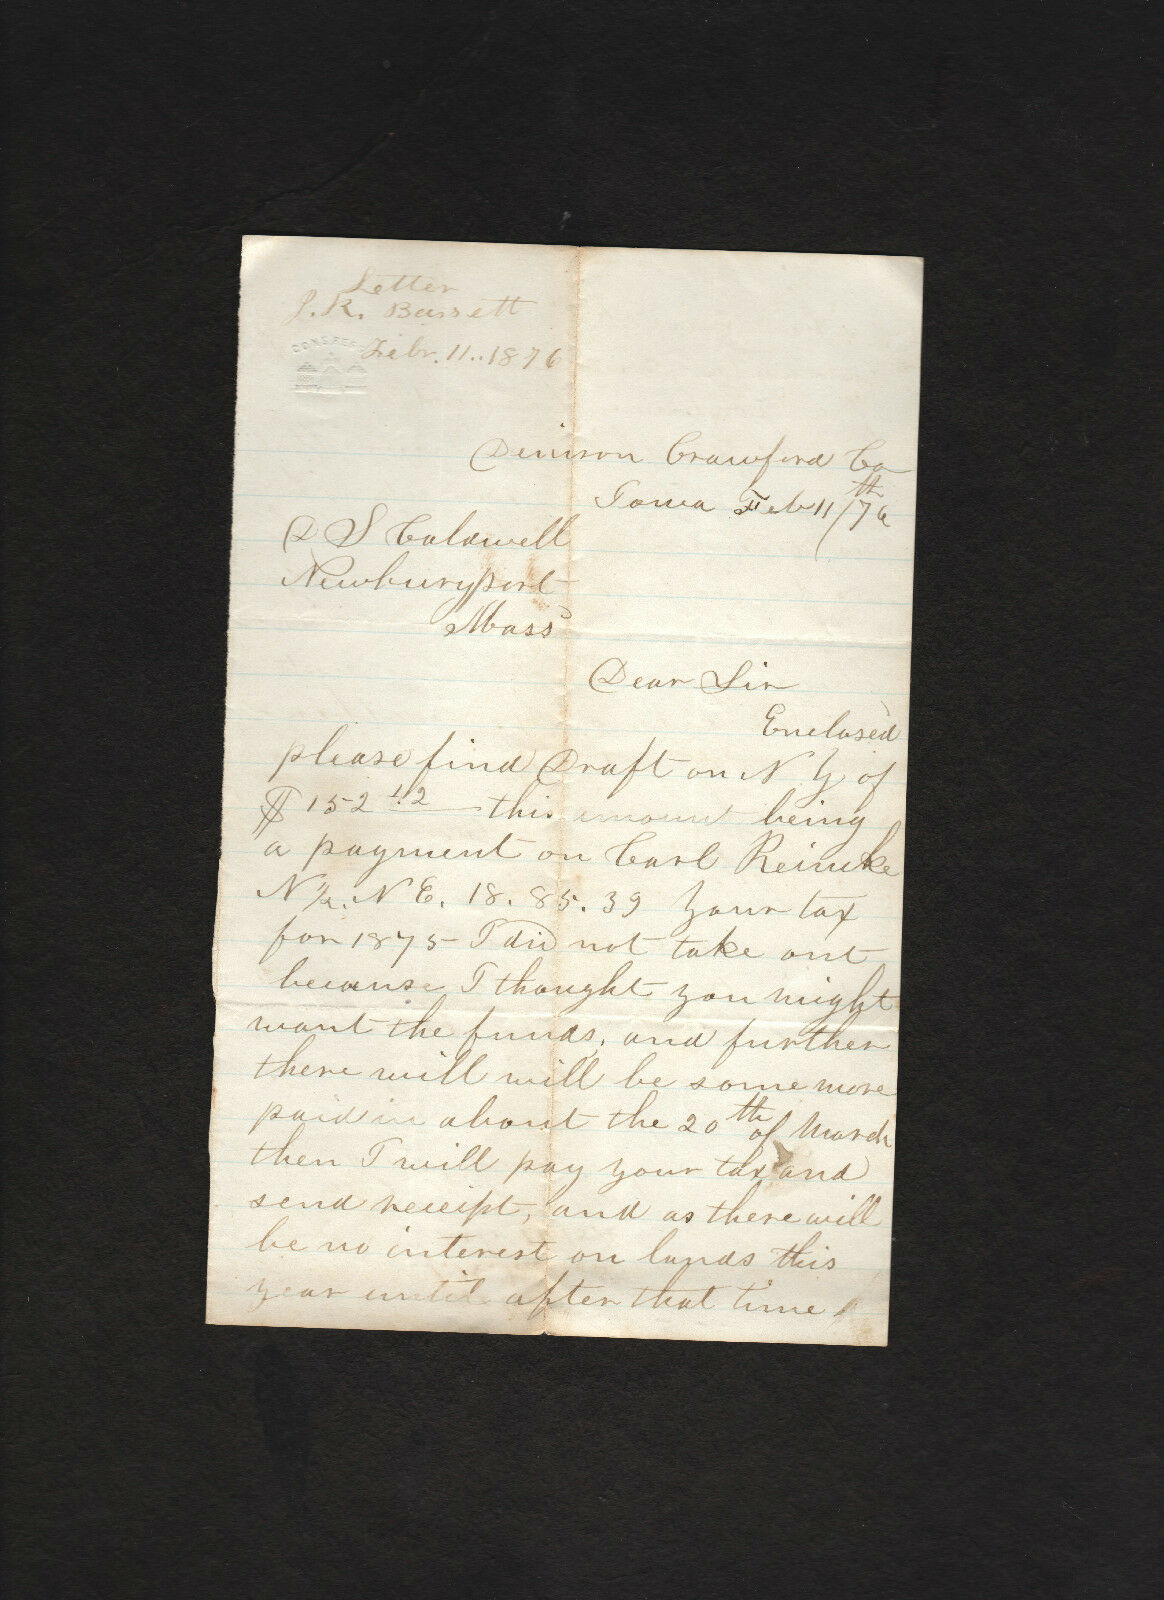 Letter
J. R. Bassett
Febr. 11. 1876
CONGRESS
Denison Crawford Co
Iowa Feb 11th/76
D S Caldwell
Newburyport
Mass
Dear Sir
Enclosed
please find Draft on N Y of
$152 12 this amount being
a payment on Carl Reinke
N 1/2. N E. 18. 85. 39 Your tax
for 1875 I did not take out
because I thought you might
want the funds, and further
there will will be some more
paid in about the 20th of March
then I will pay your tax and
send receipt, and as there will
be no interest on lands this
year until after that time